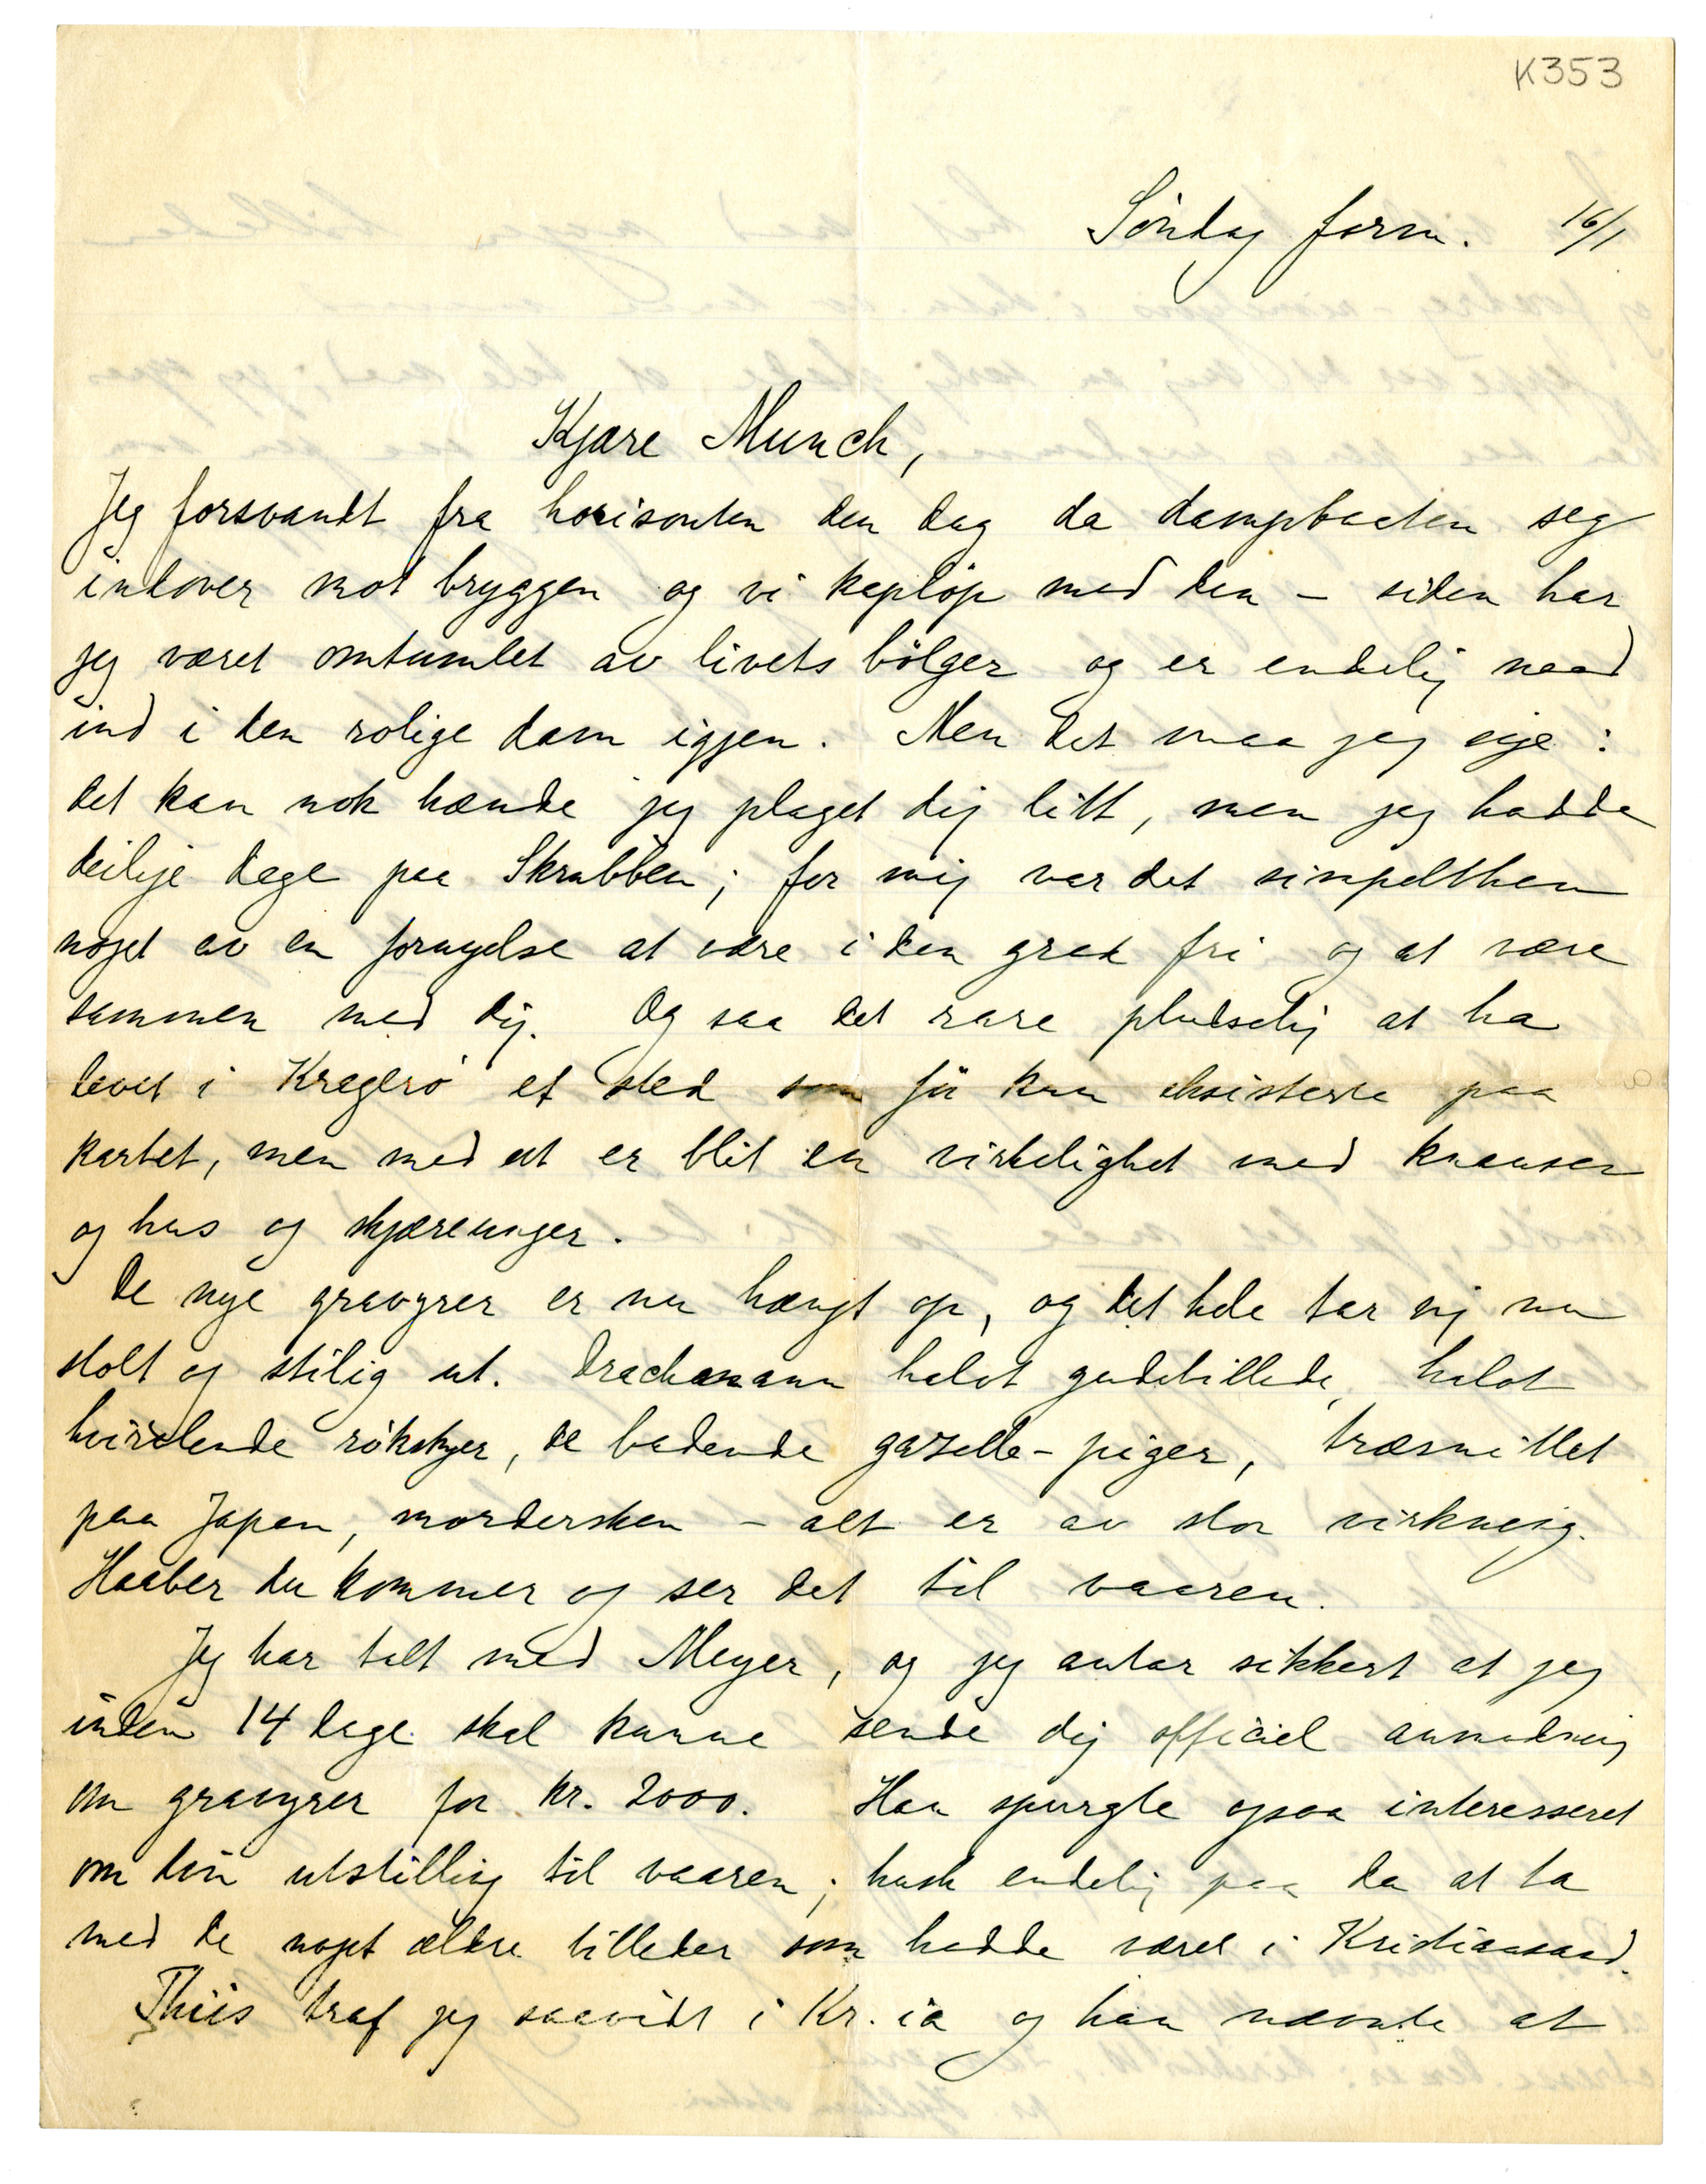 K353
Søndag form. 16/1
Kjære Munch,
Jeg forsvandt fra horisonten den dag da dampbaaten seg
indover mot bryggen og vi kapløp med den – siden har
jeg været omtumlet av livets bølger og er endelig naad
ind i den rolige dam igjen. Men det maa jeg sige:
det kan nok hænde jeg plaget dig litt, men jeg hadde
deilige dage paa Skrubben; for mig var det simpelthen
noget av en fornyelse at være i den grad fri og at være
sammen med dig. Og saa det rare pludselig at ha
levet i Kragerø et sted som før kun eksisterte paa
kartet, men med et er blit en virkelighet med knauser
og hus og skjæreunger.
De nye gravyrer er nu hængt op, og det hele tar sig nu
stolt og stilig ut. Drachmann halvt gudebillede, halvt
hvirvlende røkskyer, de badende gazelle-piger, træsnittet
paa Japan, mordersken – alt er av stor virkning.
Haaber du kommer og ser det til vaaren.
Jeg har talt med Meyer, og jeg antar sikkert at jeg
inden 14 dage skal kunne sende dig officiel anmodning
om gravyrer for kr. 2000. Han spurgte ogsaa interesseret
om din utstilling til vaaren; husk endelig paa da at ta
med de noget ældre billeder som hadde været i Kristianssand.
Thiis traf jeg saavidt i Kr.ia og han nævnte at